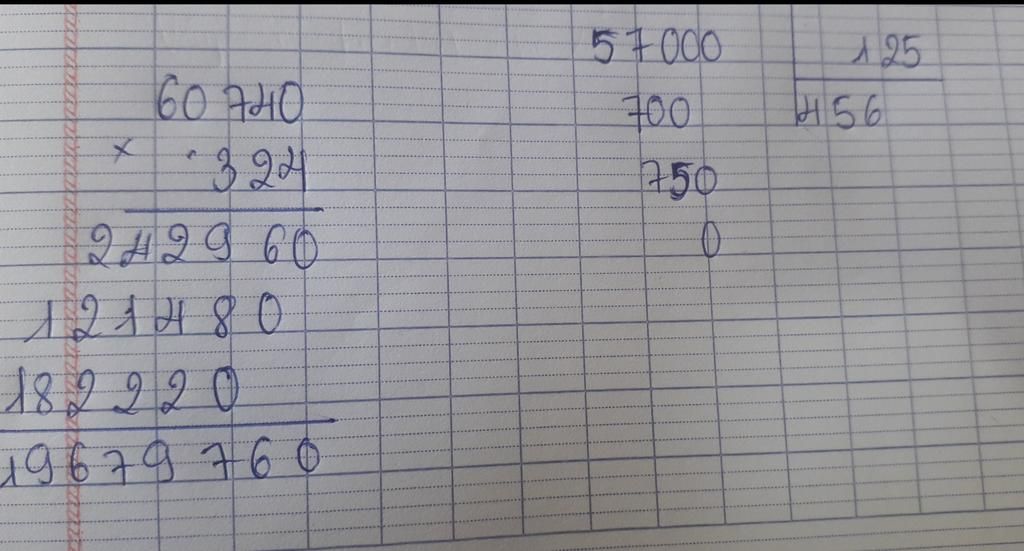 60740
× 324
242960
121480
182220
19679760
57000 125
700 456
750
0